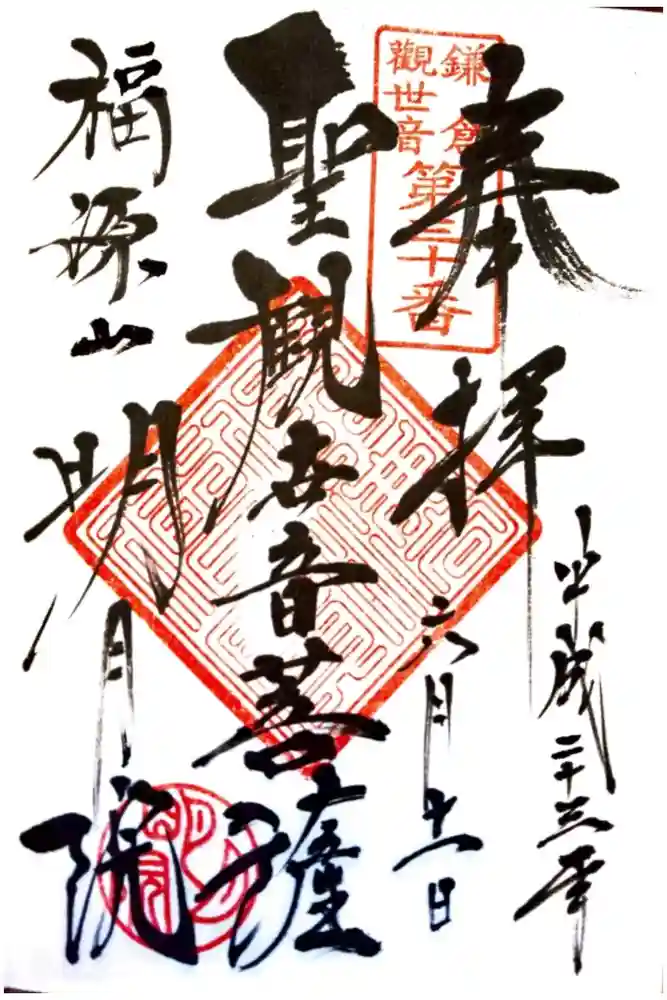 奉拝
平成二十三年
六月十一日
鎌倉
觀世音
第三十番
聖観世音菩薩
福源山
明月院